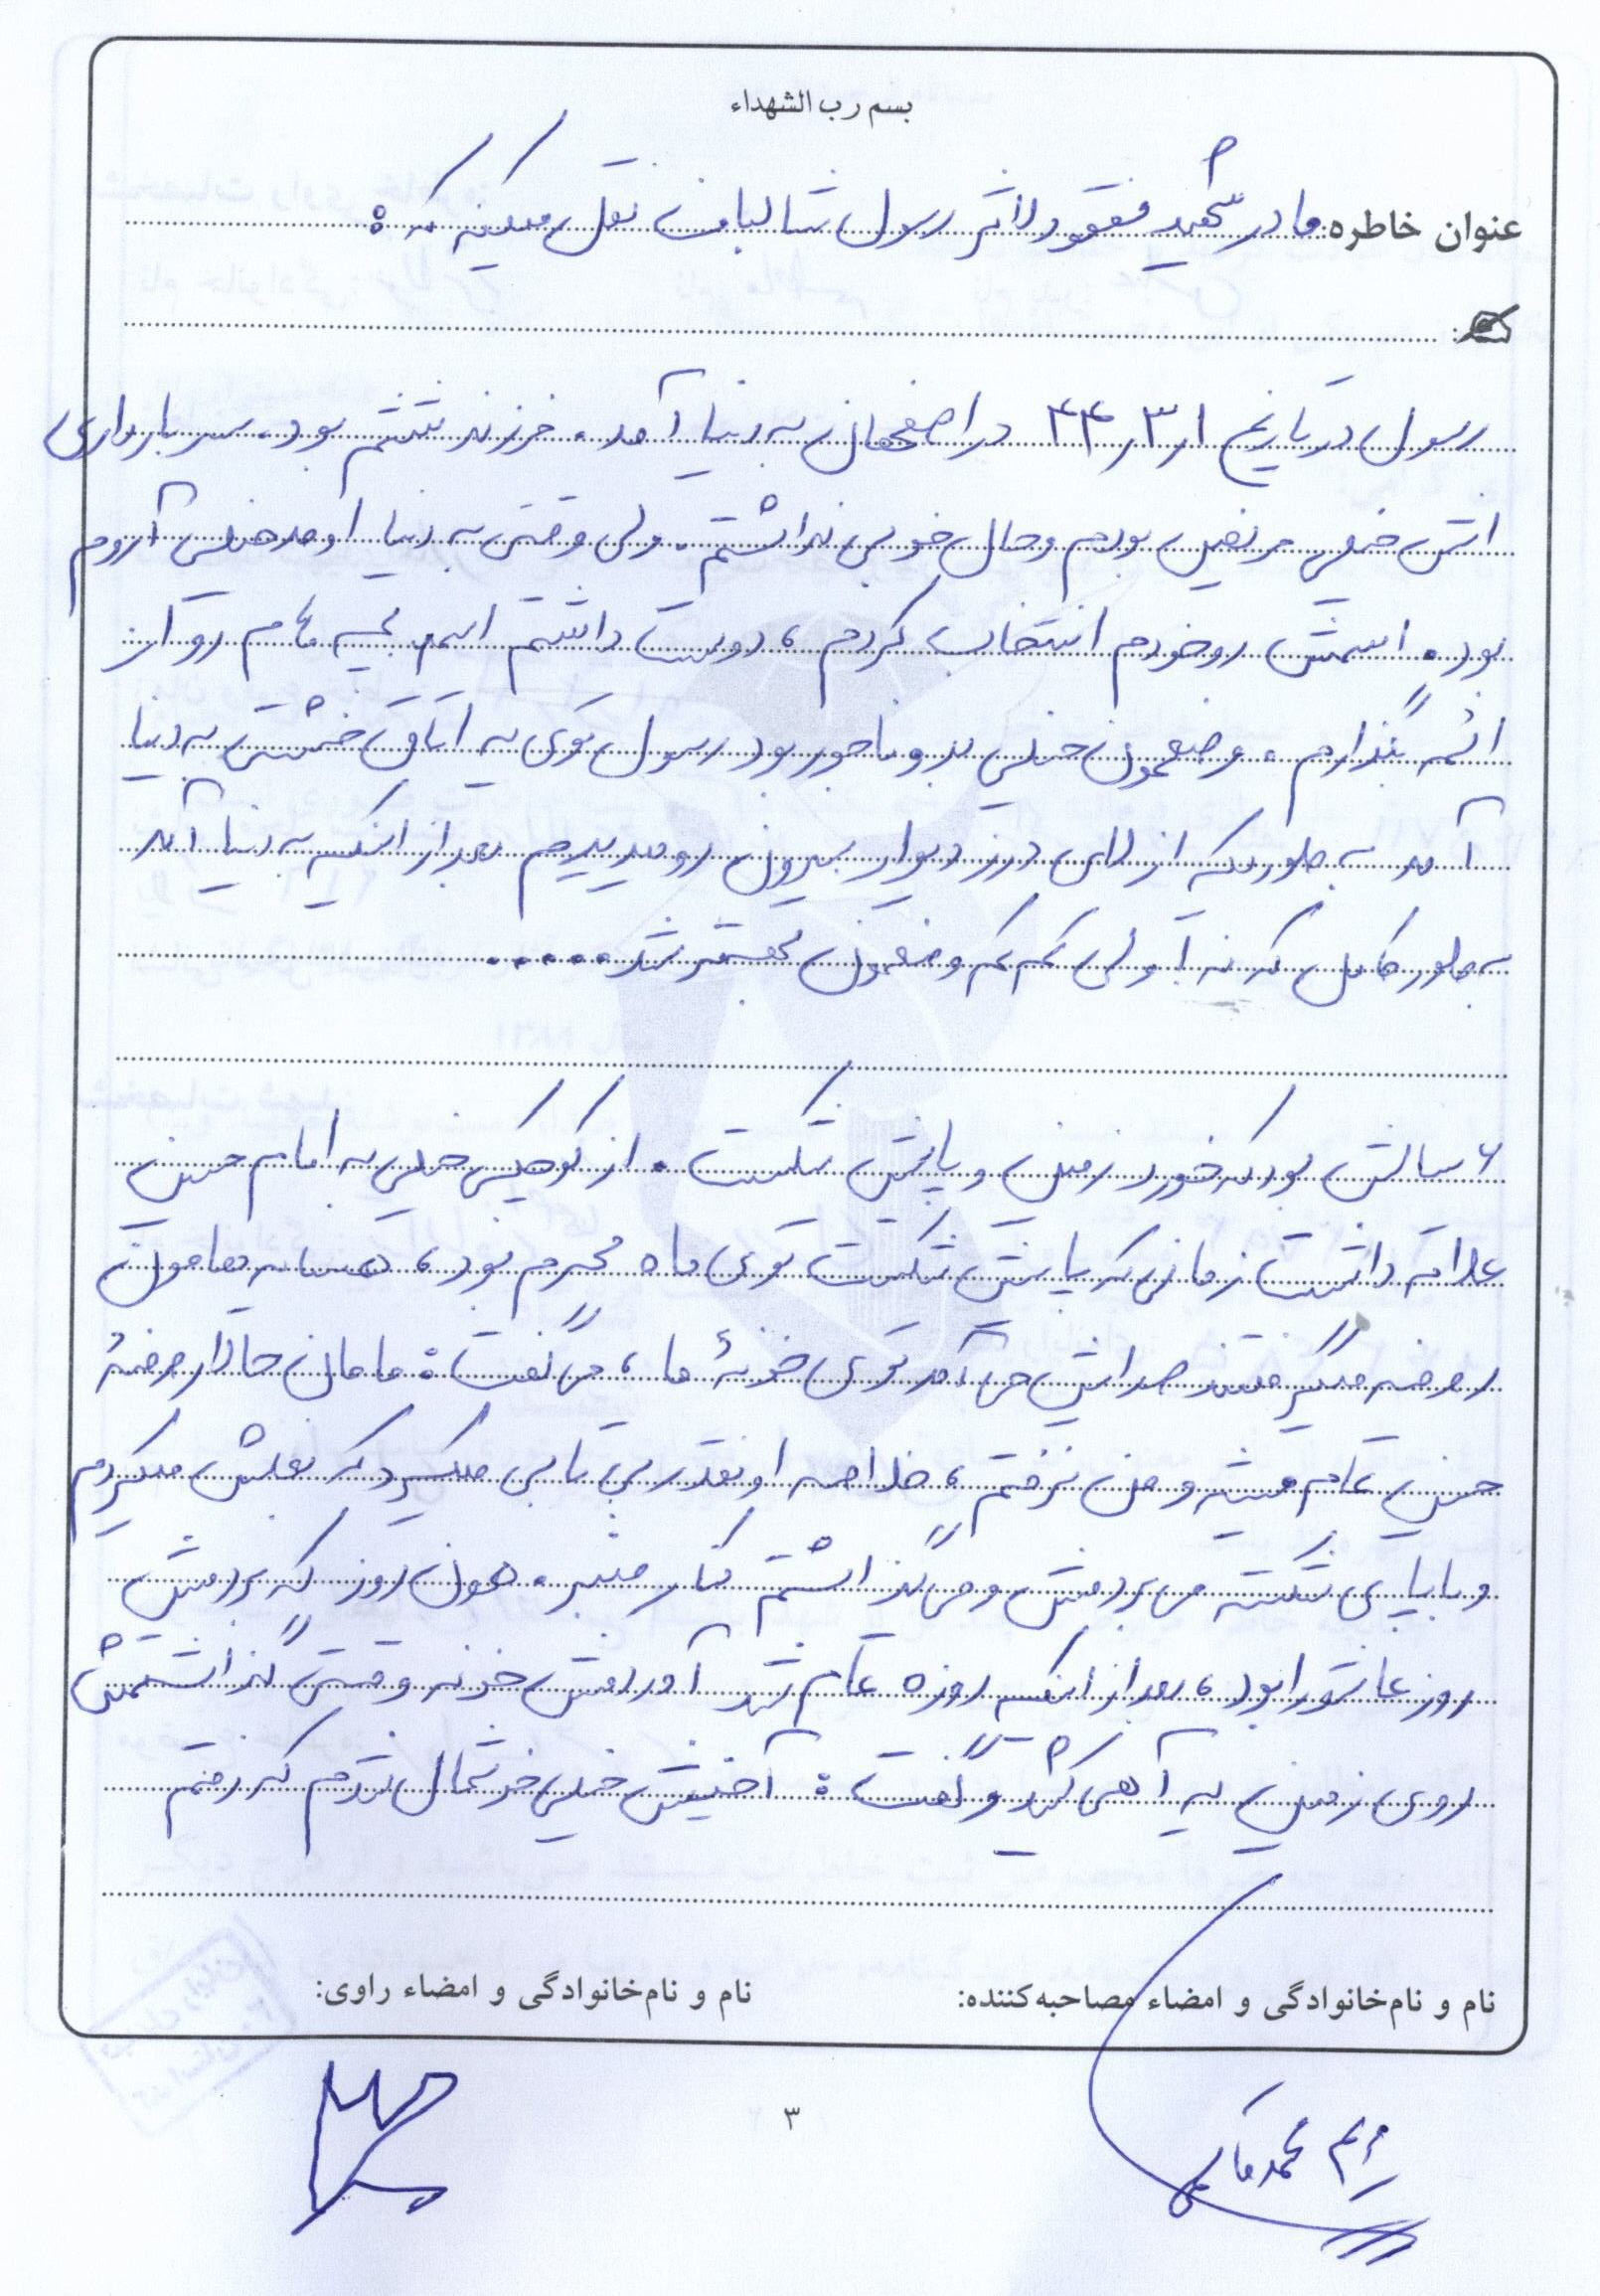 بسم رب الشهداء
عنوان خاطره: مادر شهید مفقودالاثر رسول شالبافان نقل میکنه که:
رسول در تاریخ ۴۴٫۳٫۱ در اصفهان به دنیا آمد. فرزند ششم بود. سر بارداری
اش خیلی مریض بودم و حال خوبی نداشتم. ولی وقتی به دنیا اومد خیلی آروم
بود. اسمش رو خودم انتخاب کردم، دوست داشتم اسم بچه هام رو از
ائمه بگذارم. وضعمون خیلی بد و ناجور بود رسول توی یه اتاق خشتی به دنیا
آمد به طوریکه از لای درز دیوار بیرون رو میدیدیم بعد از اینکه به دنیا آمد
به طور کامل که نه اولی کم کم وضعمون بهتر شد.....
۶ سالش بود که خورد زمین و پایش شکست. از کوچیکی خیلی به امام حسین
علاقه داشت زمانی که پایش شکست توی ماه محرم بود، همسایه هامون
روضه میگرفتند صدایش می آمد توی خونهٔ ما، می گفت: مامان حالا روضهٔ
حسین تمام میشه و من نرفتم، خلاصه اونقدر بی تابی میکرد که بغلش میکردم
و با پای شکسته می بردمش و می گذاشتم کنار منبر. همون روز که بردمش
روز عاشورا بود، بعد از اینکه روزه تمام شد آوردمش خونه وقتی گذاشتمش
روی زمین یه آهی کشید و گفت: آخیش خیلی خوشحال شدم که رفتم
نام و نام‌خانوادگی و امضاء مصاحبه‌کننده: نام و نام‌خانوادگی و امضاء راوی:
مریم محمد
۳